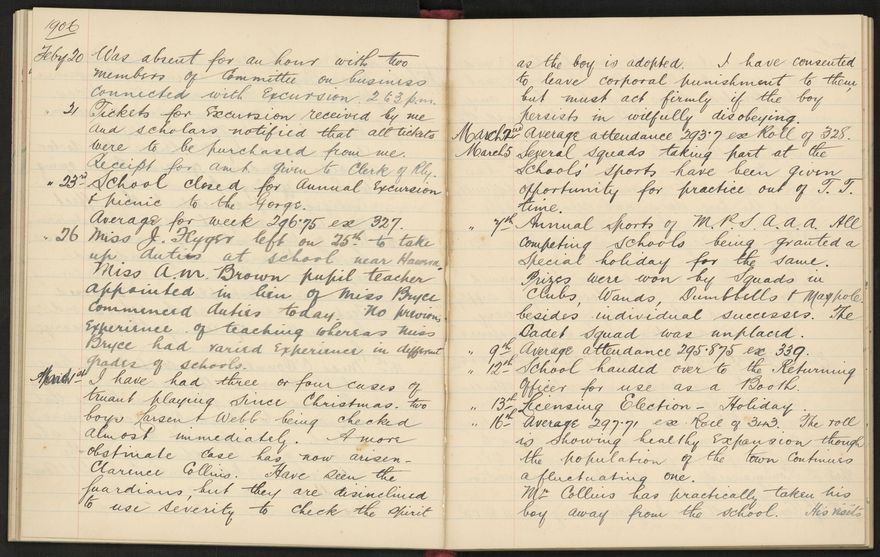 1906
Feby 20 Was absent for an hour with two
members of Committee on business
connected with Excursion. 2 to 3 p.m.
" 21 Tickets for Excursion received by me
and scholars notified that all tickets
were to be purchased from me.
Receipt for amt given to Clerk of Rly.
" 23rd School closed for Annual Excursion
& picnic to the Gorge.
Average for week 296.75 ex 327.
" 26 Miss J. Kyger left on 25th to take
up duties at school near Hawera.
Miss A.M. Brown pupil teacher
appointed in lieu of Miss Bryce
commenced duties today. No previous
Experience of teaching whereas Miss
Bryce had varied Experience in different
grades of schools.
March 1st I have had three or four cases of
truant playing since Christmas. two
boys Larsen & Webb being checked
almost immediately. A more
obstinate case has now arisen -
Clarence Collins. Have seen the
guardians, but they are disinclined
to use severity to check the spirit
as the boy is adopted. I have consented
to leave corporal punishment to them,
but must act firmly if the boy
persists in wilfully disobeying.
March 2nd Average attendance 293.7 ex Roll of 328.
March 5 Several squads taking part at the
Schools' Sports have been given
opportunity for practice out of T. T.
time.
" 7th Annual Sports of M. P. S. A. A. A. All
competing schools being granted a
special holiday for the same.
Prizes were won by Squads in
Clubs, Wands, Dumbbells & Maypole
besides individual successes. The
Cadet Squad was unplaced.
" 9th Average attendance 295.875 ex 339.
" 12th School handed over to the Returning
Officer for use as a Booth.
" 13th Licensing Election - Holiday.
" 16th Average 297.71 ex Roll of 343. The roll
is showing healthy Expansion though
the population of the town continues
a fluctuating one.
Mr Collins has practically taken his
boy away from the school. His visits